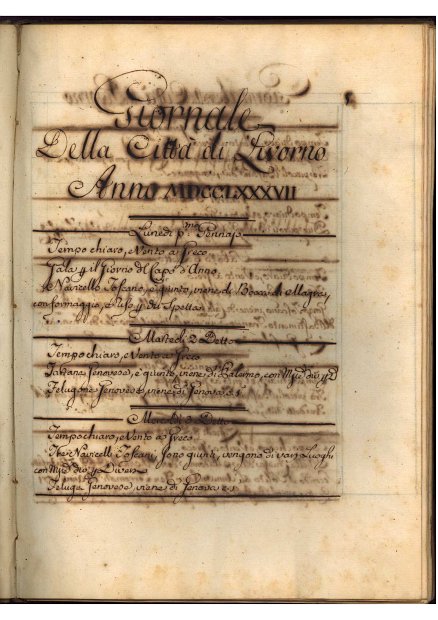 Giornale
Della Città di Livorno
Anno MDCCLXXXVII
Lunedì p.mo Gennajo
Tempo chiaro, e Vento a Greco
Gala p il Giorno di Capo d'Anno
Navicello Toscano, è giunto, viene di Bocca di Magra,
con formaggio, e Riso p
Martedì 2 Detto
Tempo chiaro, e Vento a Greco
Genovese, è giunto, viene di Palermo, con
Felugone Genovese, viene di Genova
Mercoldì 3 Detto
Tempo chiaro, e Vento a Greco
Tre Navicelli Toscani sono giunti, vengono di varj Luoghi
con p Diversi
Feluga Genovese, viene di Genova